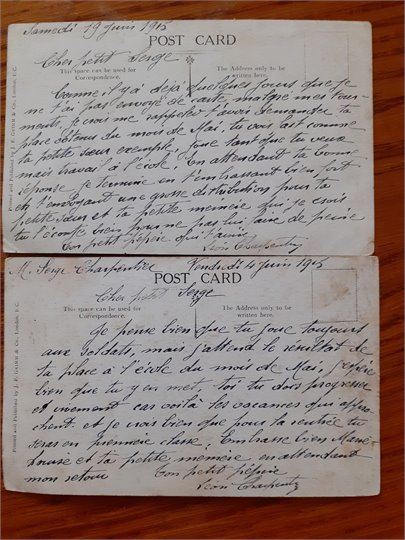 Samedi 19 Juin 1915
POST CARD
Cher petit Serge
This space can be used for
Correspondence.
The Address only to be
written here.
Comme il y a déjà quelques jours que je
ne t'ai pas envoyé de carte, malgré mes tour-
ments, je crois me rappeler t'avoir demandé ta
place du mois de Mai, tu vois fait comme
ta petite sœur exemple, joue tant que tu veux
mais travail à l'école. En attendant ta bonne
réponse je termine en t'embrassant bien fort
et t'envoyant une grosse distribution pour ta
petite sœur et ta petite mémère que je crois
tu l'écoute bien pour ne pas lui faire de peine
Ton petit pépère qui t'aime
Léon Charpentier
Printed and Published by J. F. Grimm & Co., London, E.C.
M. Serge Charpentier Vendredi 4 Juin 1915
POST CARD
Cher petit Serge
This space can be used for
Correspondence.
The Address only to be
written here.
Je pense bien que tu joue toujours
aux soldats, mais j'attend le résultat de
ta place à l'école du mois de Mai, j'espère
bien que tu y en met, toi tu dois progresser
et vivement car voilà les vacances qui appro-
chent et je vois bien que pour la rentrée tu
seras en première classe. Embrasse bien Marie
Louise et ta petite mémère en attendant
mon retour
Ton petit pépère
Léon Charpentier
Printed and Published by J. F. Grimm & Co., London, E.C.